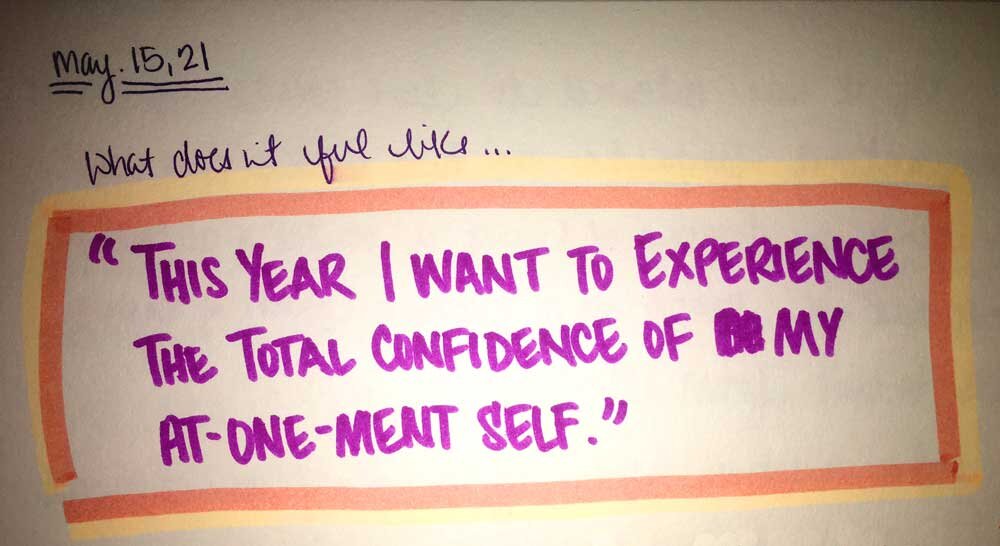 May. 15, 21
What does it feel like...
"THIS YEAR I WANT TO EXPERIENCE
THE TOTAL CONFIDENCE OF MY
AT-ONE-MENT SELF."